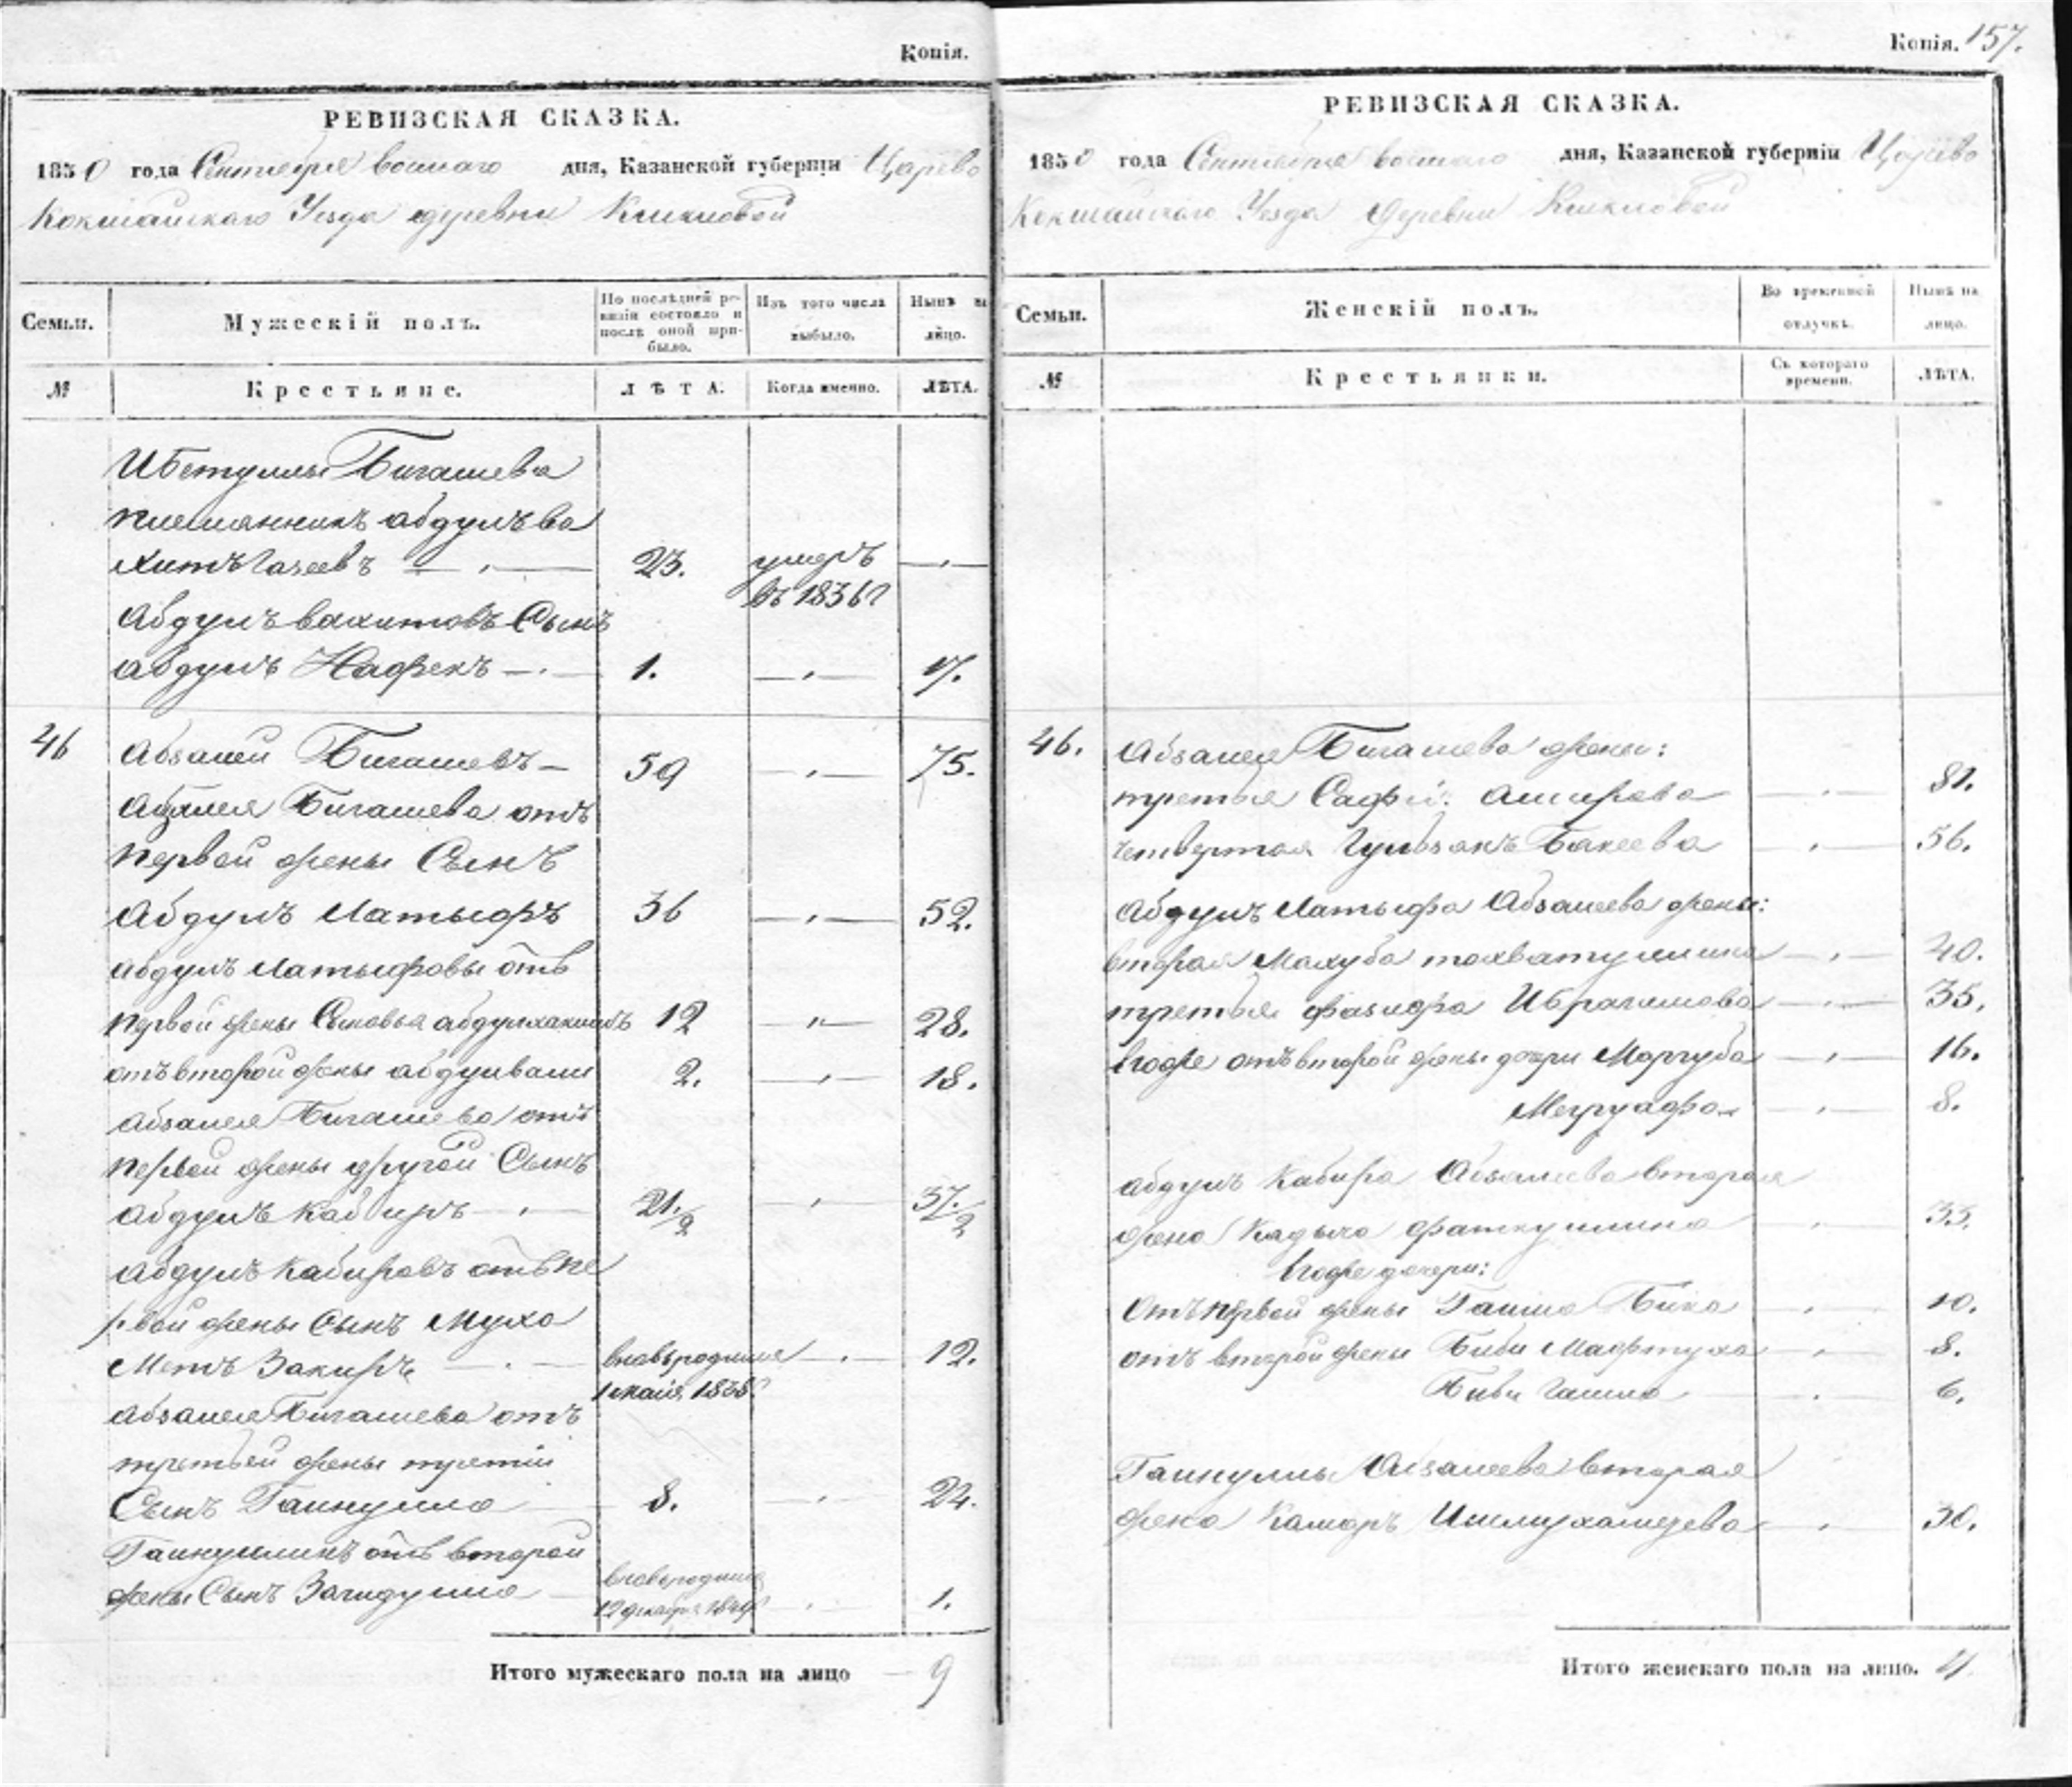 Копія.
РЕВИЗСКАЯ СКАЗКА.
1850 года Сентября восмаго дня, Казанской губерніи Царево
Кокшайскаго Уезда деревни
Семьи. Мужескій полъ. По послѣдней ревизіи состояло и послѣ оной прибыло. Изъ того числа выбыло. Нынѣ на лицо.
№ Крестьяне. ЛѢТА. Когда именно. ЛѢТА.
Ибетуллы Бигашева
племянникъ абдулъ ва
хитъ Гагеевъ 23. умеръ
въ 1836 г
Абдулъ вахитовъ Сынъ
абдулъ Нафекъ 1. 17.
46 Абзалей Бигашевъ 59 75.
Абзалея Бигашева отъ
первой жены Сынъ
Абдулъ Латыфъ 36 52.
абдулъ Латыфовы отъ
первой жены Сыновья абдулхакимъ 12 28.
отъ второй жены абдулвали 2. 18.
Абзалея Бигашева отъ
первой жены другой Сынъ
Абдулъ Кабиръ 21./2 37./2
Абдулъ Кабировъ отъ пе
рвой жены Сынъ Муха
метъ Закиръ вновьрожде 12.
1 мая 1838
Абзалея Бигашева отъ
третьей жены третій
Сынъ Гайнулла 8. 24.
Гайнуллинъ отъ второй
жены Сынъ Загидулла
12 декабря 1849 1.
Итого мужескаго пола на лицо 9
Копія. 157.
РЕВИЗСКАЯ СКАЗКА.
1850 года Сентября восмаго дня, Казанской губерніи Царево
Кокшайскаго Уезда деревни
Семьи. Женскій полъ. Во временной отлучкѣ. Нынѣ на лицо.
№ Крестьянки. Съ котораго времени. ЛѢТА.
46. Абзалея Бигашева жены:
третья Сафій. Амирова 81.
четвертая Гулвзянъ Бакеева 56.
Абдулъ Латыфа Абзалеева жены:
вторая Махуба тохватуллина 40.
третья Фазифа Ибрагимова 35.
Ево же отъ второй жены дочери Маргуба 16.
8.
абдулъ Кабира Абзалеева вторая
жена Кадыча фаткуллина 33.
Ево же дочери:
Отъ первой жены Гайша Бика 10.
отъ второй жены Биби Мафтуха 8.
Биби Гайша 6.
Гайнуллы Абзалеева вторая
жена Камаръ Ишмухаметева 30.
Итого женскаго пола на лицо. 11